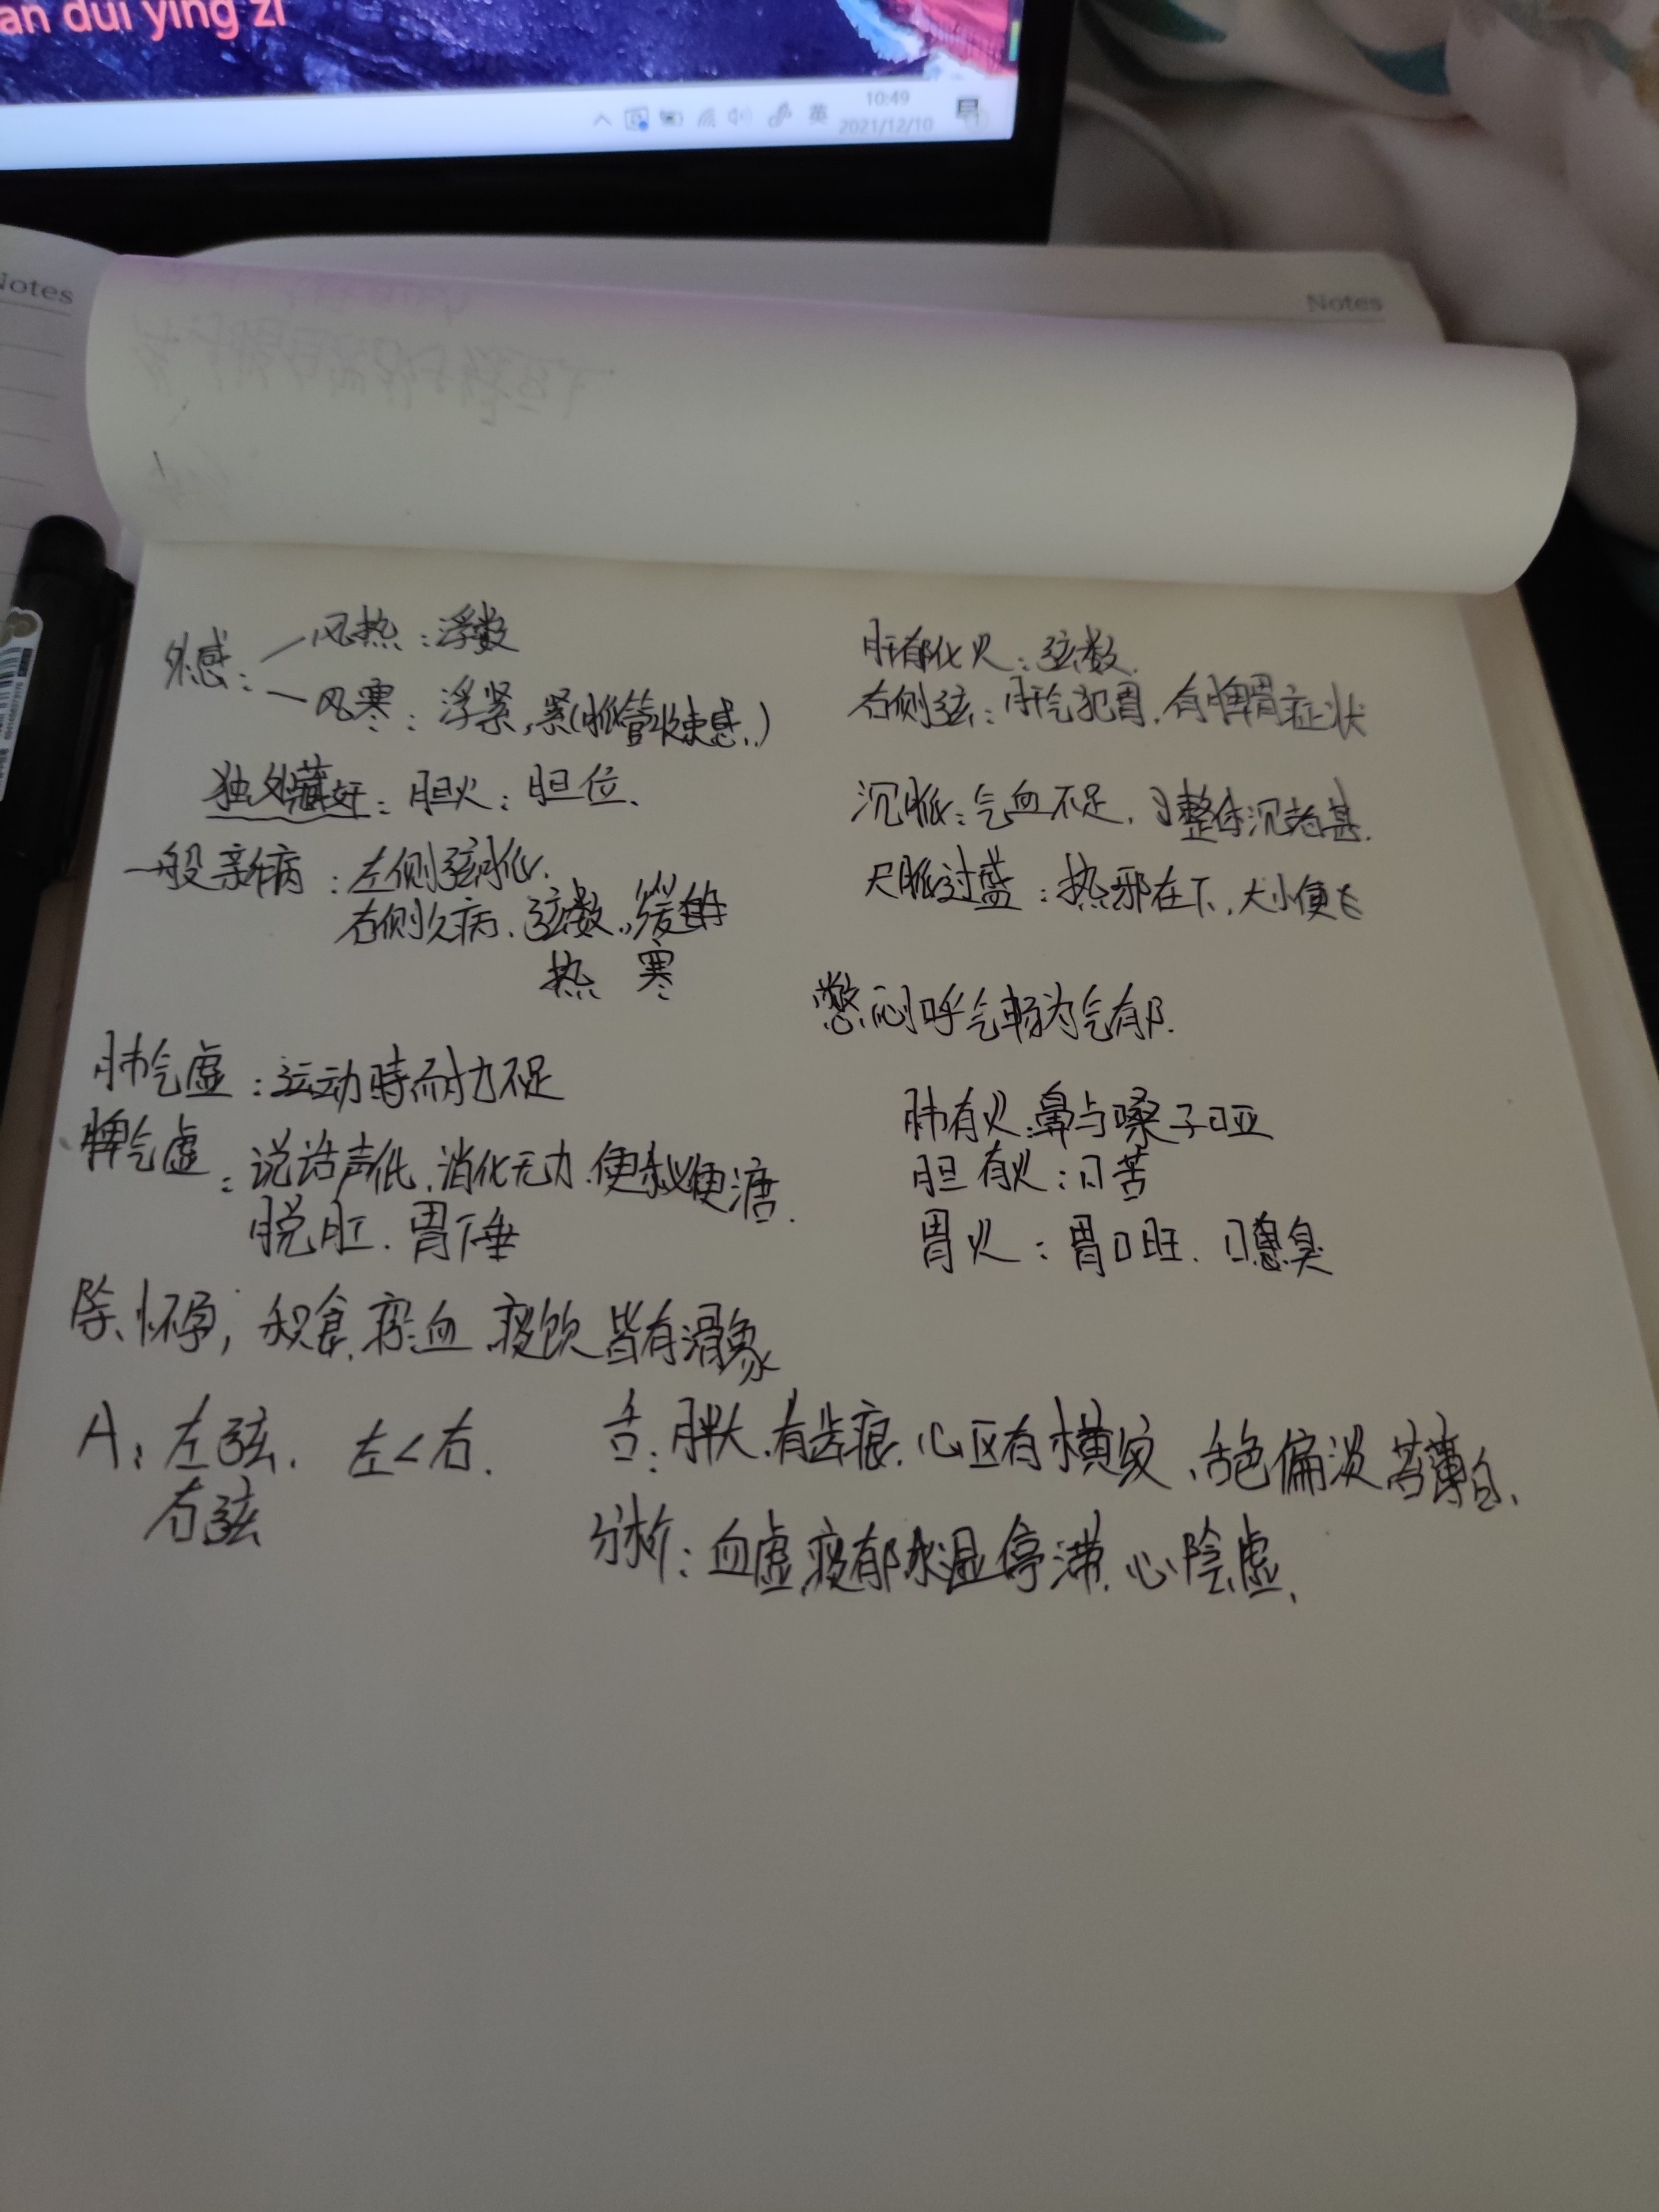 an dui ying zi
英
10:49
2021/12/10
Notes
Notes
外感:
风热:浮数
风寒:浮紧,紧(脉管收束感..)
独处藏奸:胆火:胆位.
一般新病:左侧弦脉.
右侧久病.弦数.缓
热 寒
肺气虚:运动时耐力不足
脾气虚:说话声低.消化无力.便秘便溏.
脱肛.胃下垂
除怀孕,积食.瘀血.痰饮皆有滑象
A:左弦. 左<右.
右弦
肝郁化火:弦数.
右侧弦:肝气犯胃.有脾胃症状
沉脉:气血不足.整体沉者甚.
尺脉过盛:热邪在下,大小便
憋闷呼气畅为气郁.
肺有火:鼻与嗓子哑
胆有火:口苦
胃火:胃口旺.口噫臭
舌:胖大.有齿痕.心区有横纹.舌色偏淡苔薄白.
分析:血虚.痰郁水湿停滞.心阴虚.